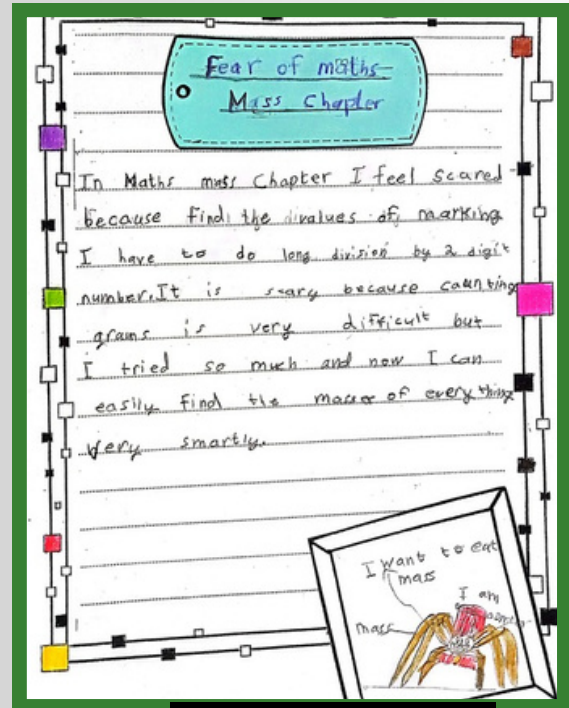 Fear of maths
Mass Chapter
In Maths mass Chapter I feel scared
because find the values of marking
I have to do long division by 2 digit
number. It is scary because caunting
grams is very difficult but
I tried so much and now I can
easily find the masse of every thing
very smartly.
I want to eat
mass
I am
mass